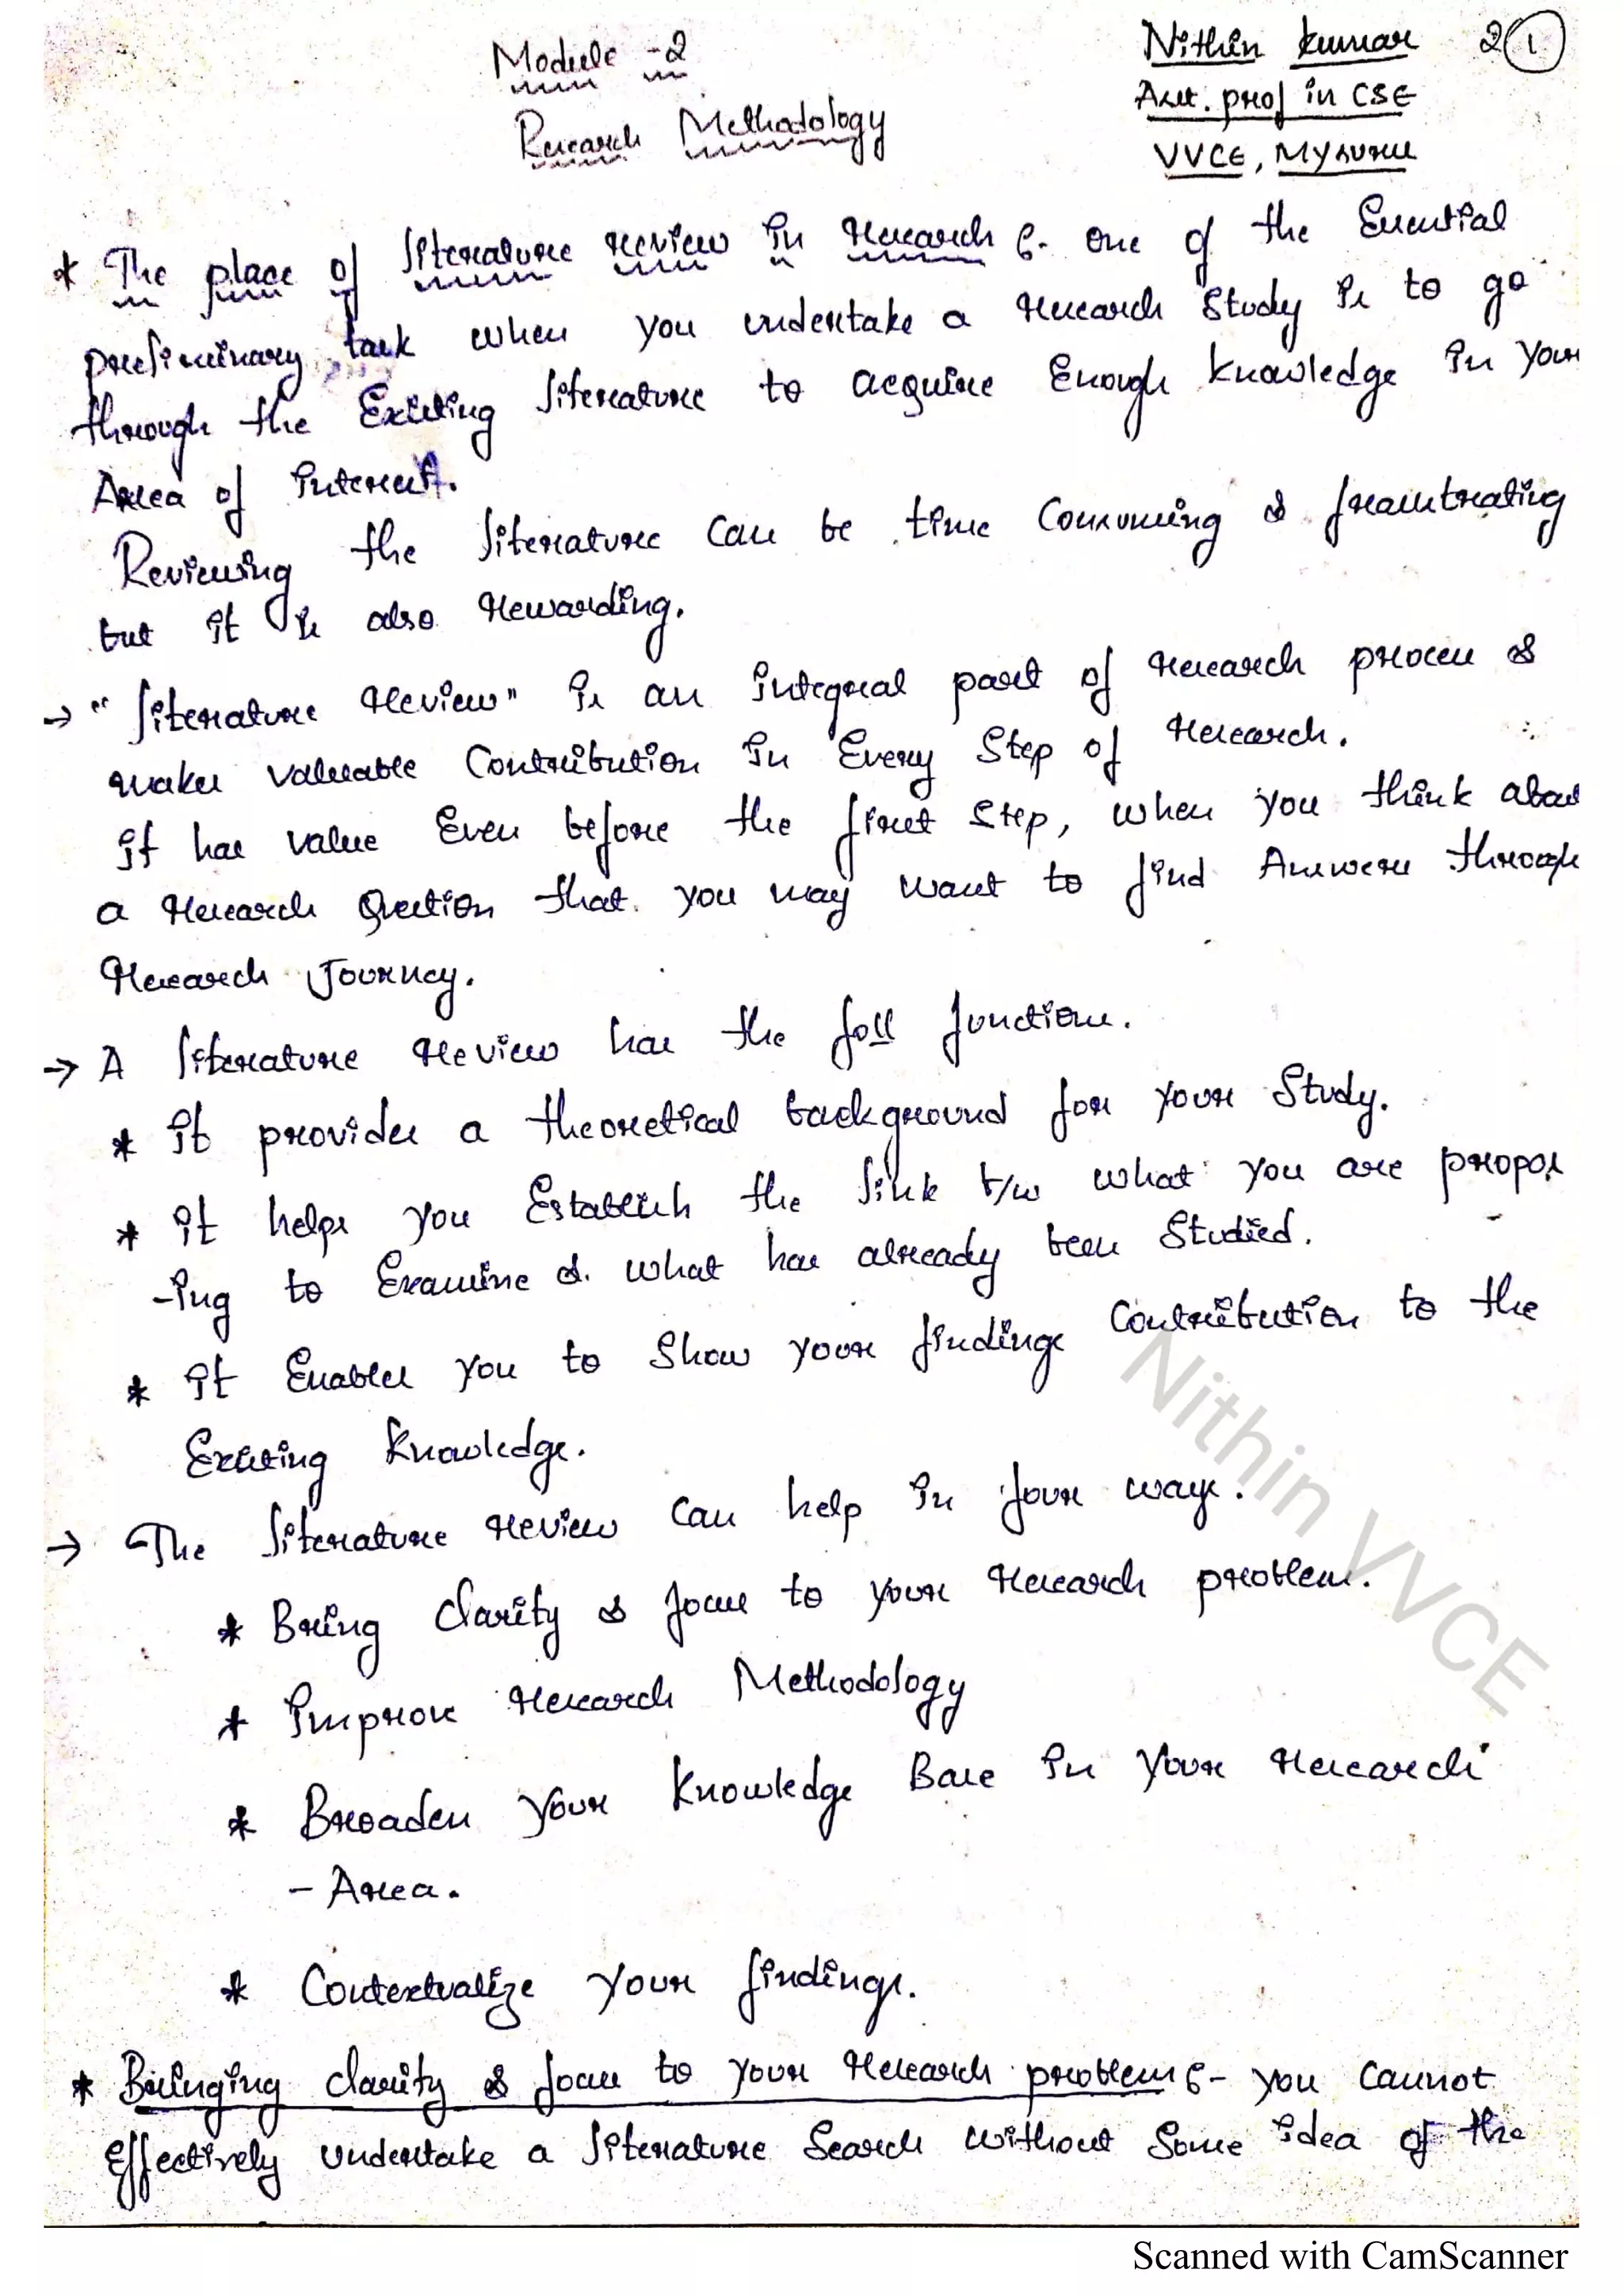 Module -2
Research Methodology
Nithin Kumar
Asst. prof in CSE
VVCE, Mysuru
2(1)
* The place of literature review in research :- one of the Essential
preliminary task when you undertake a research Study is to go
through the Existing literature to acquire Enough knowledge in your
Area of interest.
Reviewing the literature can be time Consuming & fraustrating
but it is also rewarding.
→ "literature review" is an integral part of research process &
makes valuable Contribution in Every Step of research.
it has value Even before the first Step, when you think about
a research Question that you may want to find Answers through
research Journey.
→ A literature review has the foll functions.
* it provides a theoretical background for your Study.
* it helps you Establish the link b/w what you are propos
-ing to Examine & what has already been Studied.
* it Enables you to Show your findings Contribution to the
Existing knowledge.
→ The literature review can help in four ways.
* Bring Clarity & focus to your research problem.
* improve research Methodology
* Broaden your knowledge Base in your research
- Area.
* Contextualize your findings.
* Bringing clarity & focus to your research problem :- you cannot
Effectively undertake a literature Search without Some idea of the
Nithin VVCE
Scanned with CamScanner